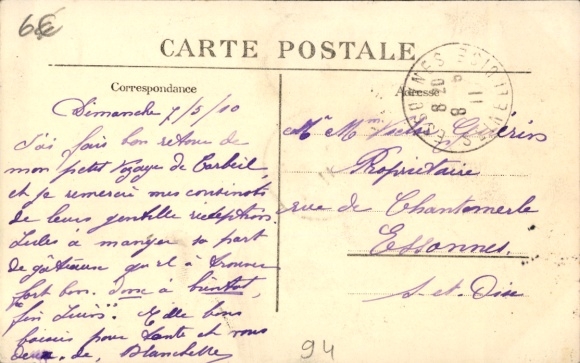 6€
CARTE POSTALE
Correspondance
Adresse
Dimanche 7/5/10
J'ai fais bon retour de
mon petit voyage de Corbeil,
et je remercie mes cousinots
de leurs gentille réception.
Jules à manger sa part
de gâteaux qu'el à trouver
fort bon. donc à bientot,
bons
baisers pour tante et vous
deux. de, Blanchette
Mr Mme Guérin
Propriétaire
rue de Chantemerle
Essonnes.
S-et-Oise
ESSONNES SEINE ET OISE
94